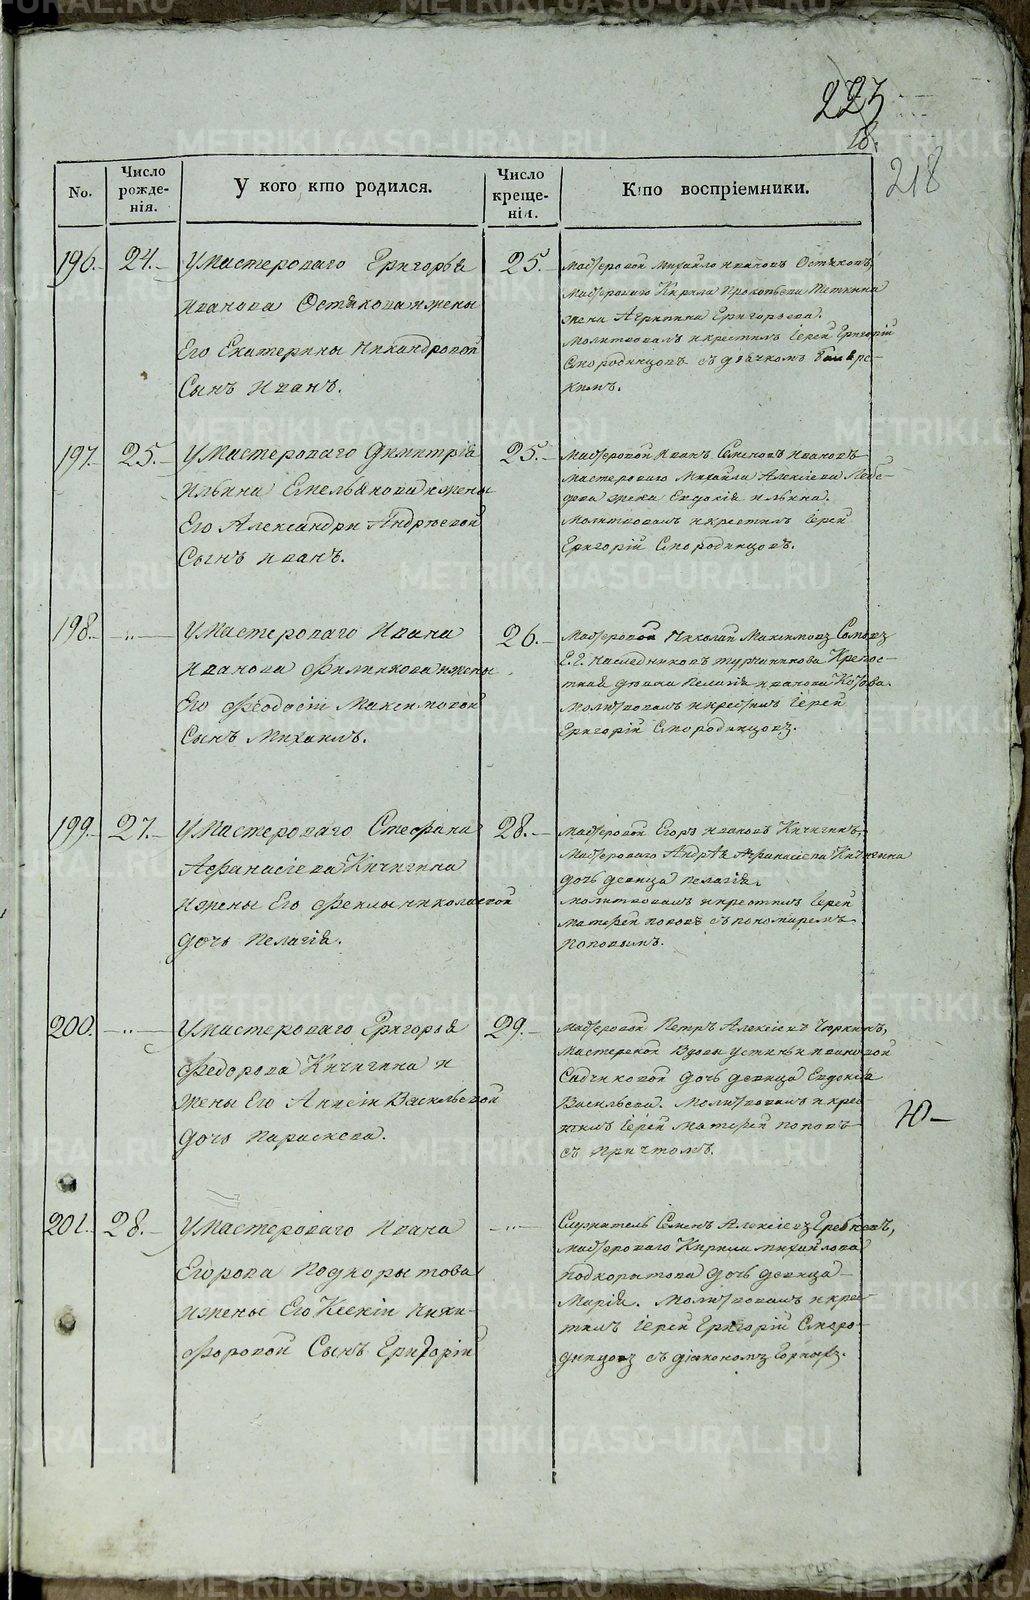 223
218
No.
Число рожде-нія.
У кого кто родился.
Число креще-нія.
Кто воспріемники.
196. 24.
У Мастероваго Григорья
Иванова Остякова и жены
Его Екатерины Никандровой
Сынъ Иванъ.
25.
Мастеровой Михайло Ивановъ Остяковъ,
Мастероваго Кирила Прокопьева
жена Агрипина Григорьева.
Молитвовалъ и крестилъ Іерей Григорій
Смородинцовъ съ дьячкомъ
197. 25.
У Мастероваго Димитрія
Ильина Емельянова и жены
Его Александры Андреевой
Сынъ Иванъ.
25.
Мастеровой Иванъ Семеновъ Ивановъ
Мастероваго Михаила Алексіева Лебе-
дева жена Евдокія Ильина.
Молитвовалъ и крестилъ Іерей
Григорій Смородинцовъ.
198. „
У Мастероваго Ивана
Иванова Филинкова и жены
Его Феодосіи Максимовой
Сынъ Михаилъ.
26.
Мастеровой Николай Максимовъ
Г. Г. Наследниковъ Турчанинова Крепос-
тная девка Пелагія Иванова
Молитвовалъ и крестилъ Іерей
Григорій Смородинцовъ.
199. 27.
У Мастероваго Стефана
Афанасіева Кичигина
и жены Его Феклы Николаевой
дочь Пелагія.
28.
Мастеровой Егоръ Ивановъ Кичигинъ,
Мастероваго Андрея Афанасіева Кичигина
дочь девица Пелагія.
Молитвовалъ и крестилъ Іерей
Матфей Поповъ съ пономаремъ
Поповымъ.
200. „
У Мастероваго Григорья
Федорова Кичигина и
жены Его Анисіи Васильевой
дочь Параскева.
29.
Мастеровой Петръ Алексіевъ Чюркинъ,
Мастерской Вдовы Устиньи Ивановой
Садчиковой дочь девица Евдокія
Васильева. Молитвовалъ и крес-
тилъ Іерей Матфей Поповъ
съ причтомъ.
Ю
201. 28.
У Мастероваго Ивана
Егорова Подкорытова
и жены Его Ксеніи Ники-
форовой Сынъ Григорій
„
Служитель Семенъ Алексіевъ Гребневъ,
Мастероваго Кирила Михайлова
Подкорытова дочь девица
Марія. Молитвовалъ и крес-
тилъ Іерей Григорій Сморо-
динцовъ съ діакономъ
METRIKI.GASO-URAL.RU